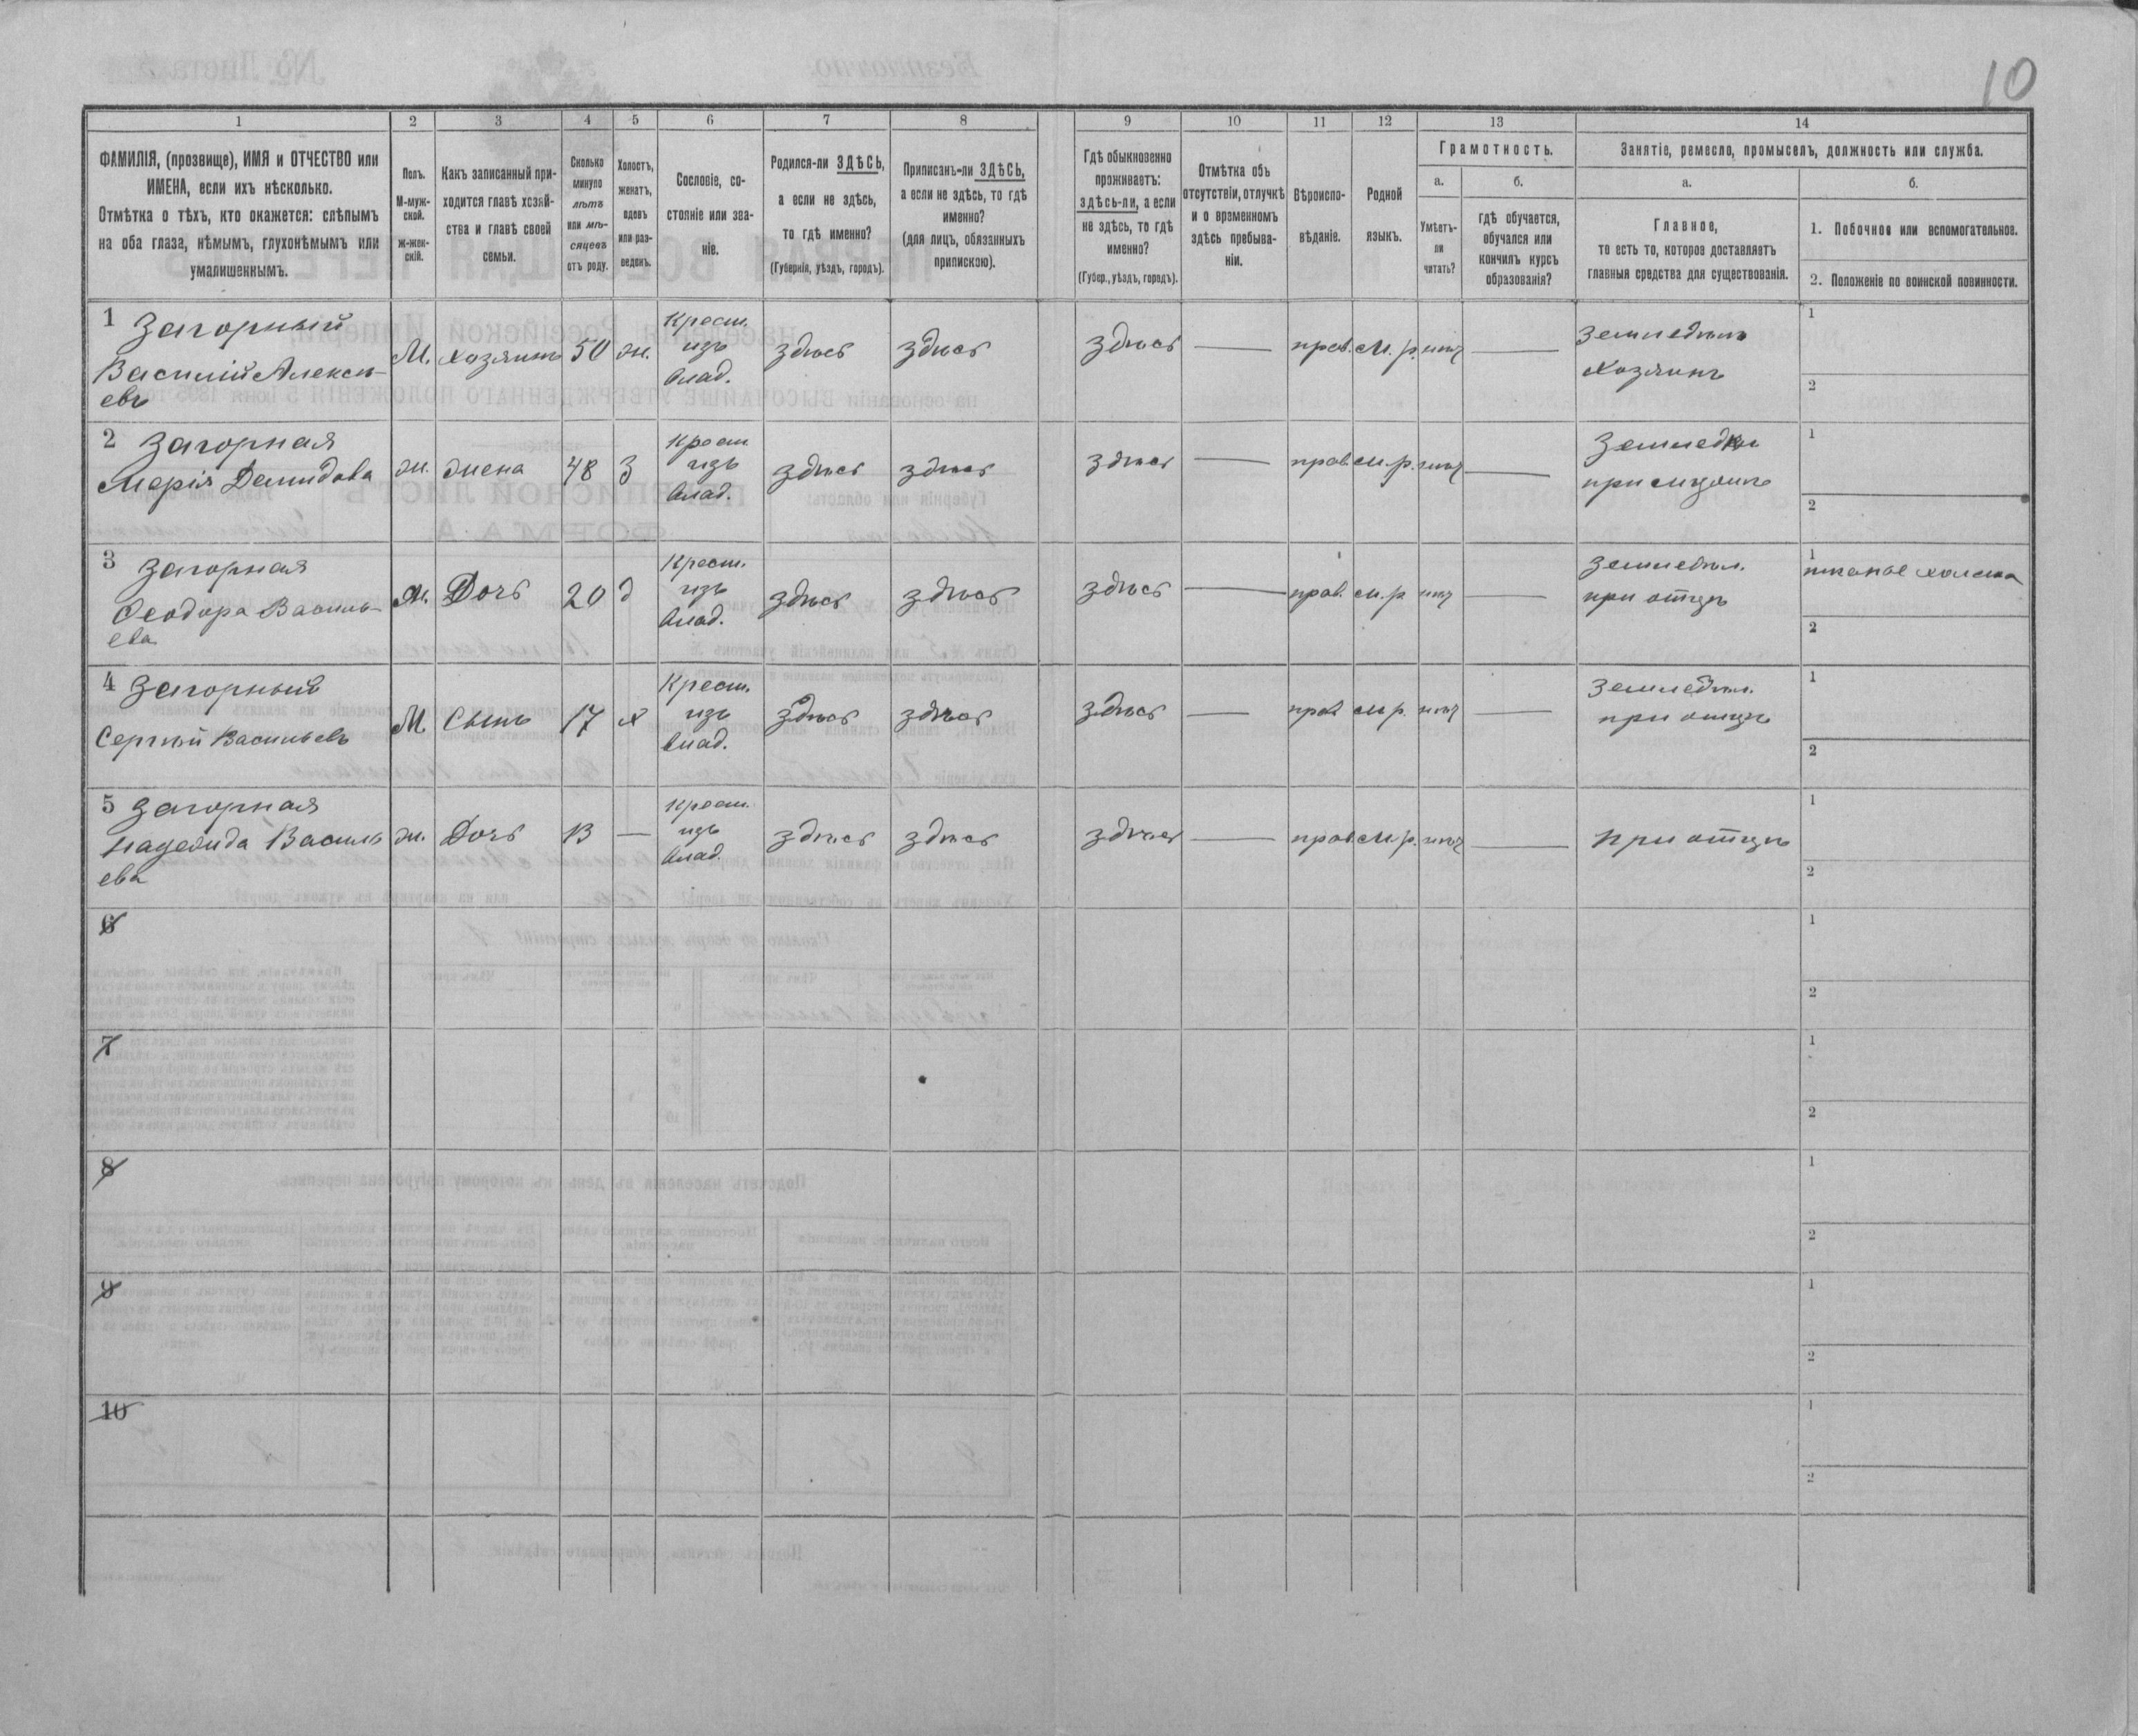 10
1 2 3 4 5 6 7 8 9 10 11 12 13 14
ФАМИЛІЯ, (прозвище), ИМЯ и ОТЧЕСТВО или
ИМЕНА, если ихъ нѣсколько.
Отмѣтка о тѣхъ, кто окажется: слѣпымъ
на оба глаза, нѣмымъ, глухонѣмымъ или
умалишеннымъ.
Полъ.
М-муж-
ской.
ж-жен-
скій.
Какъ записанный при-
ходится главѣ хозяй-
ства и главѣ своей
семьи.
Сколько
минуло
лѣтъ
или мѣ-
сяцевъ
отъ роду.
Холостъ,
женатъ,
вдовъ
или раз-
веденъ.
Сословіе, со-
стояніе или зва-
ніе.
Родился-ли ЗДѢСЬ,
а если не здѣсь,
то гдѣ именно?
(Губернія, уѣздъ, городъ).
Приписанъ-ли ЗДѢСЬ,
а если не здѣсь, то гдѣ
именно?
(для лицъ, обязанныхъ
припискою).
Гдѣ обыкновенно
проживаетъ:
здѣсь-ли, а если
не здѣсь, то гдѣ
именно?
(Губер., уѣздъ, городъ).
Отмѣтка объ
отсутствіи, отлучкѣ
и о временномъ
здѣсь пребыва-
ніи.
Вѣроиспо-
вѣданіе.
Родной
языкъ.
Грамотность.
а.
Умѣетъ-
ли
читать?
б.
гдѣ обучается,
обучался или
кончилъ курсъ
образованія?
Занятіе, ремесло, промыселъ, должность или служба.
а.
Главное,
то есть то, которое доставляетъ
главныя средства для существованія.
б.
1. Побочное или вспомогательное.
2. Положеніе по воинской повинности.
1 Загорный
Василій Алексѣ-
евъ
М. хозяинъ 50 ж.
Крест.
изъ
влад.
здѣсь здѣсь здѣсь — прав. м. р. нѣт —
Земледѣлъ
хозяинъ
1
2
2 Загорная
Марія Демидова
ж. жена 48 з
Крест
изъ
влад.
здѣсь здѣсь здѣсь — прав. м. р. нѣт —
Земледѣл
при мужѣ
1
2
3 Загорная
Ѳеодора Василь-
ева
ж. Дочь 20 д
Крест.
изъ
влад.
здѣсь здѣсь здѣсь — прав. м. р нѣт —
Земледѣл.
при отцѣ
1
тканье холста
2
4 Загорный
Сергѣй Васильевъ
М Сынъ 17 х
Крест.
изъ
влад.
здѣсь здѣсь здѣсь — прав м р. нѣт —
Земледѣл.
при отцѣ
1
2
5 Загорная
Надежда Василь
ева
ж. Дочь 13 —
Крест.
изъ
влад.
здѣсь здѣсь здѣсь — прав. м. р. нѣт —
при отцѣ
1
2
6
1
2
7
1
2
8
1
2
9
1
2
10
1
2